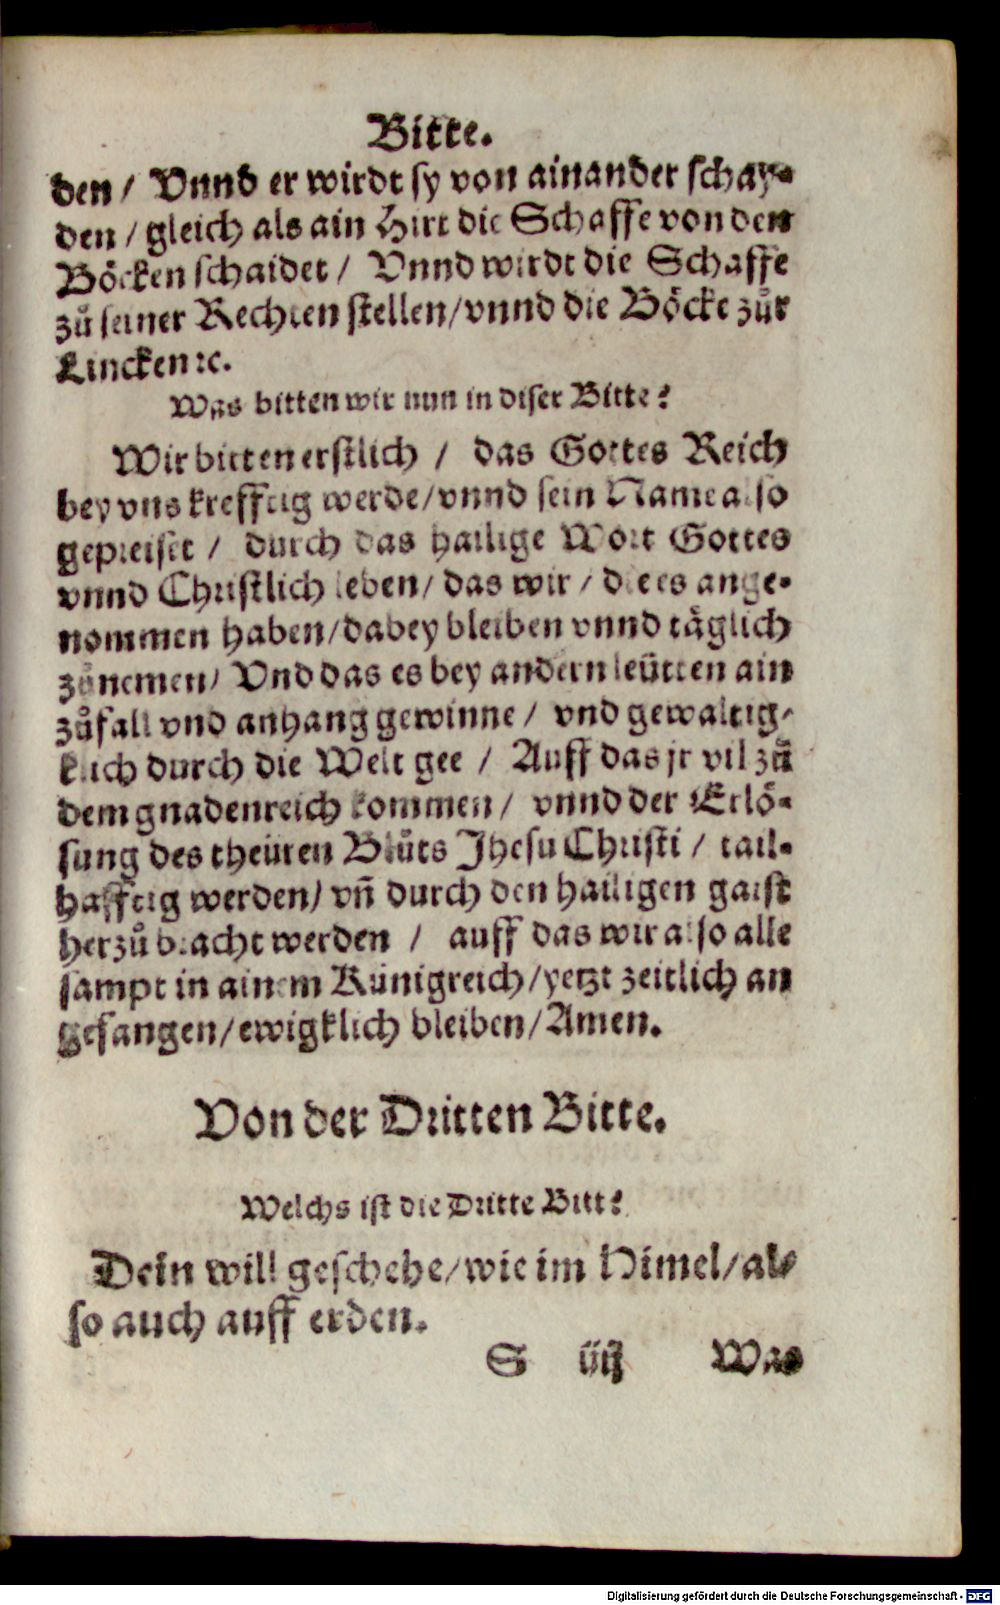 Bitte.
den / Vnnd er wirdt sy von ainander schay-
den / gleich als ain Hirt die Schaffe von den
Böcken schaidet / Vnnd wirdt die Schaffe
zů seiner Rechten stellen / vnnd die Böcke zůr
Lincken ꝛc.
Was bitten wir nun in diser Bitte?
Wir bitten erstlich / das Gottes Reich
bey vns krefftig werde / vnnd sein Name also
gepreiset / durch das hailige Wort Gottes
vnnd Christlich leben / das wir / die es ange-
nommen haben / dabey bleiben vnnd täglich
zůnemen / Vnd das es bey andern leütten ain
zůfall vnd anhang gewinne / vnd gewaltig-
klich durch die Welt gee / Auff das jr vil zů
dem gnadenreich kommen / vnnd der Erlö-
sung des theüren Blůts Jhesu Christi / tail-
hafftig werden / vñ durch den hailigen gaist
herzů bracht werden / auff das wir also alle
sampt in ainem Künigreich / yetzt zeitlich an
gefangen / ewigklich bleiben / Amen.
Von der Dritten Bitte.
Welchs ist die Dritte Bitt?
Dein will geschehe / wie im Himel / al-
so auch auff erden.
S iij Was
Digitalisierung gefördert durch die Deutsche Forschungsgemeinschaft - DFG